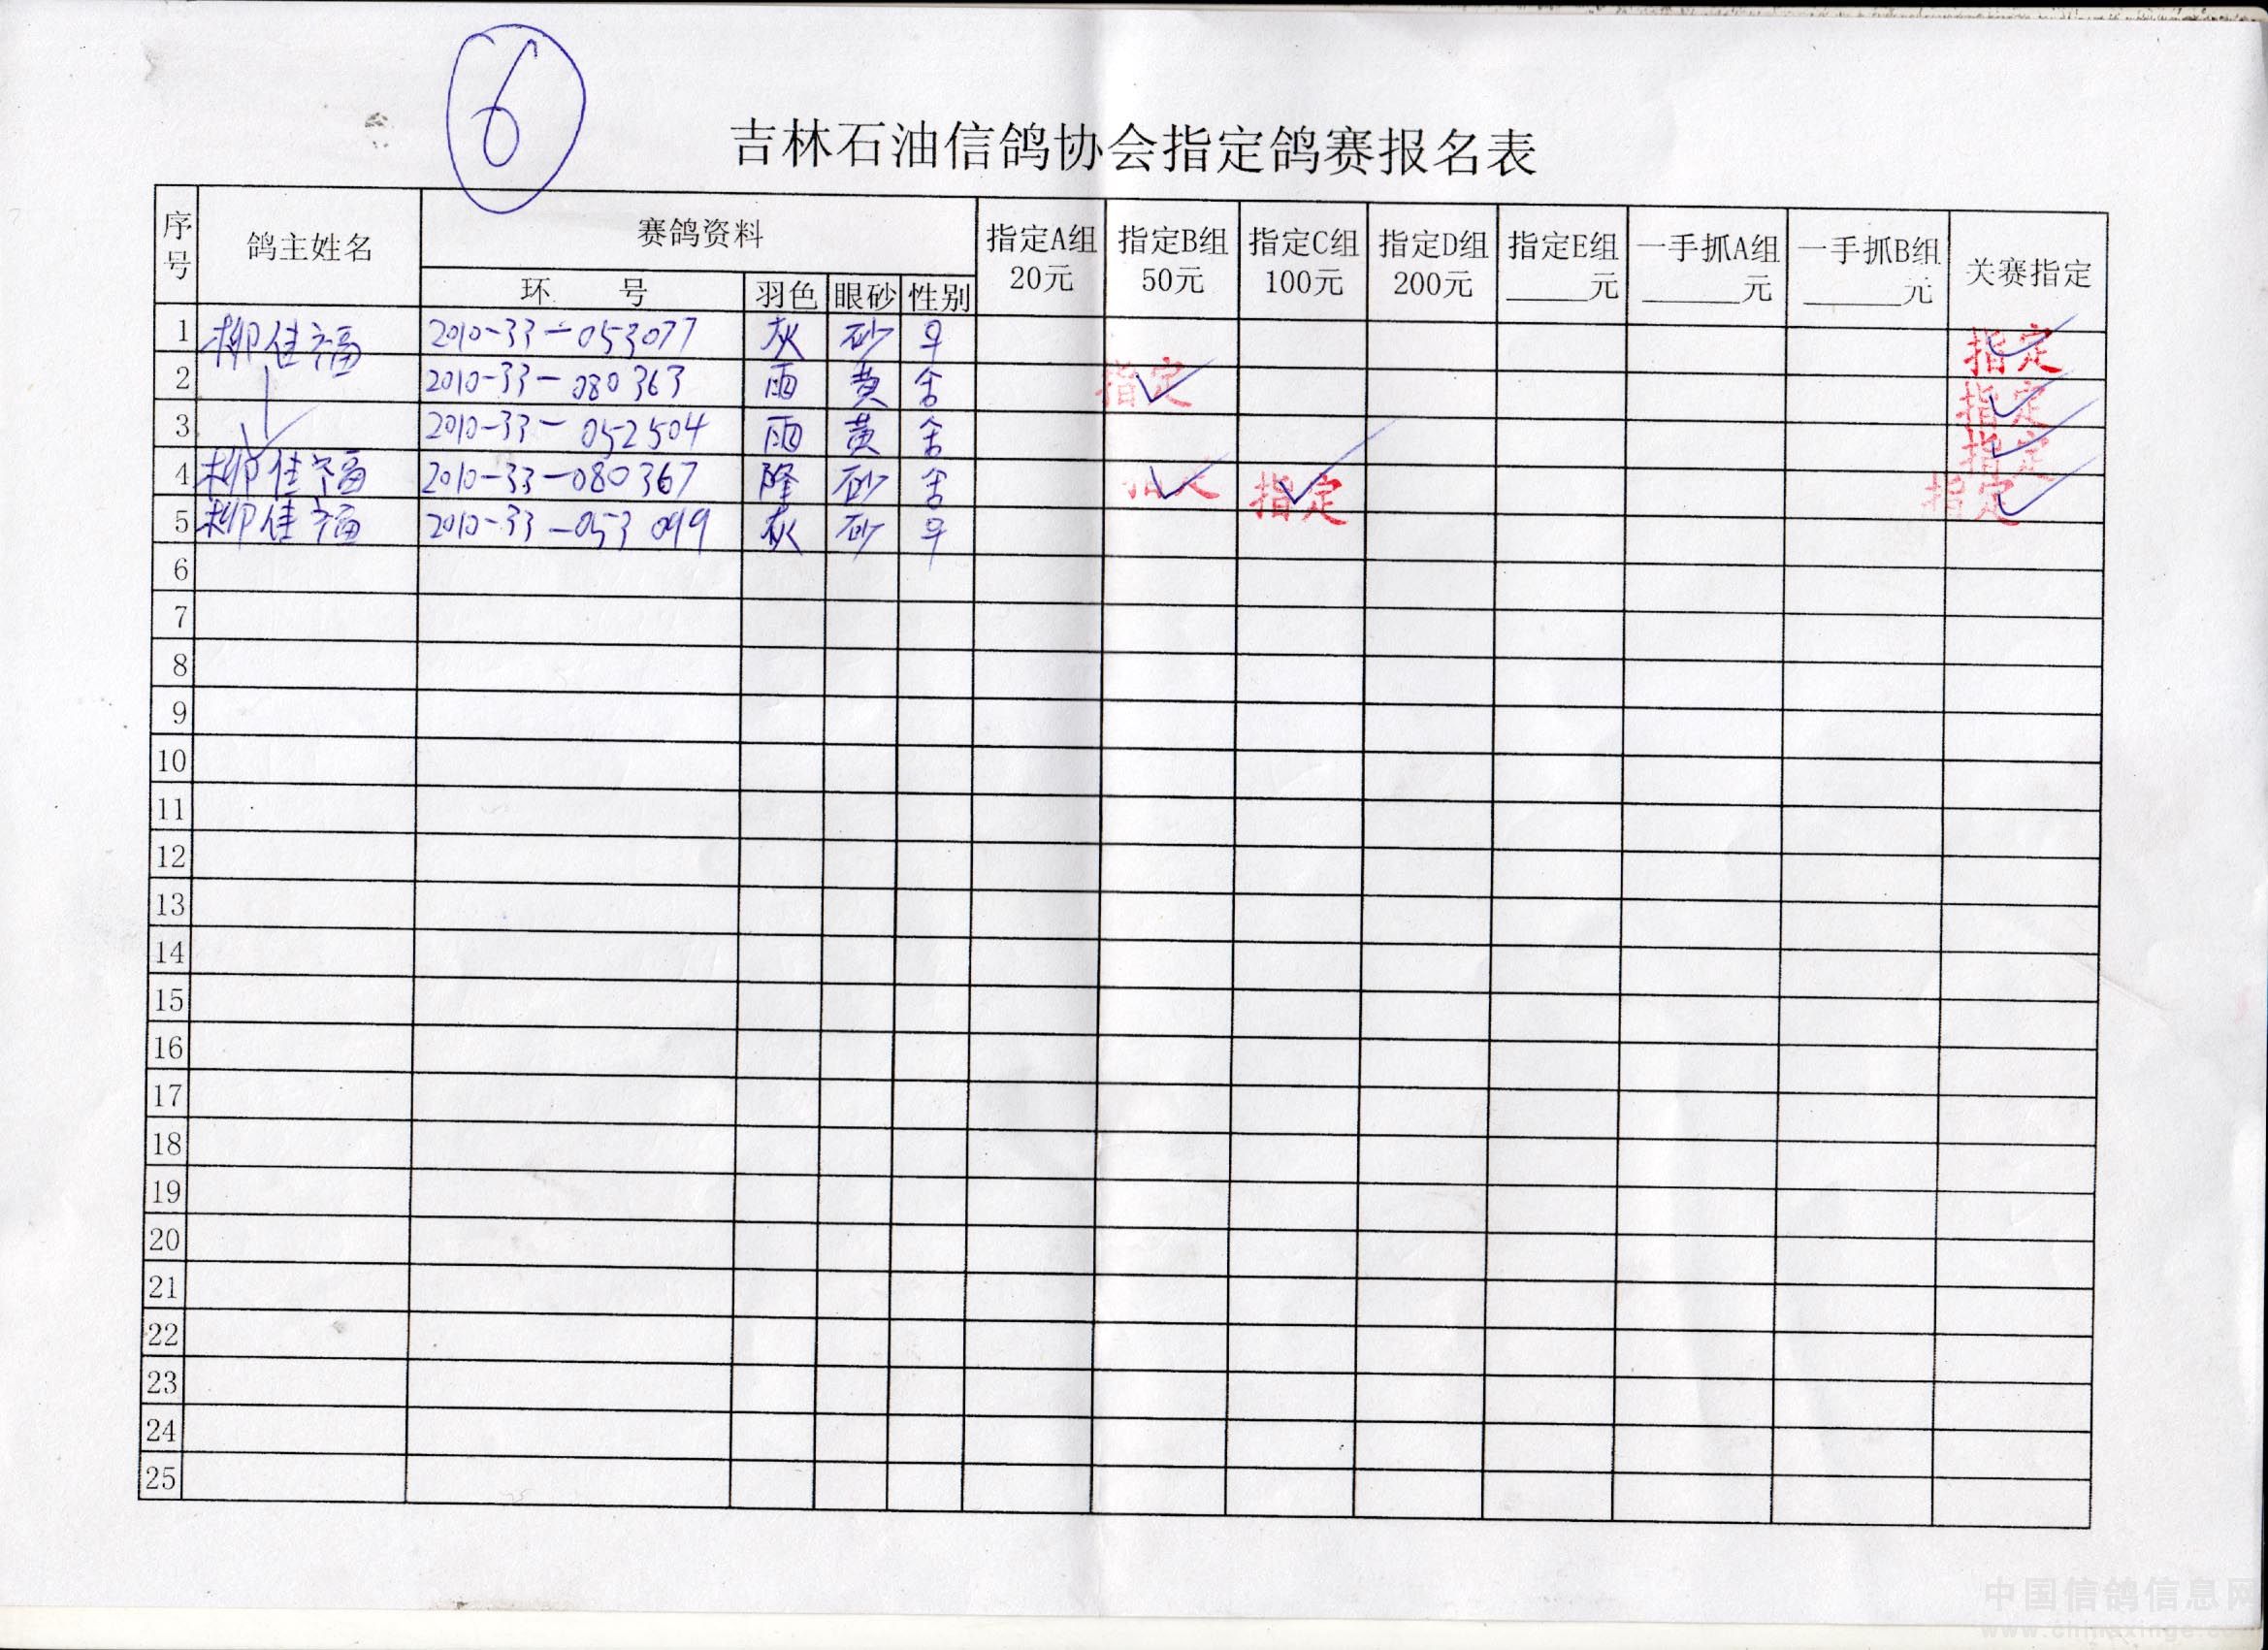 6
吉林石油信鸽协会指定鸽赛报名表
序号 鸽主姓名 赛鸽资料 指定A组 20元 指定B组 50元 指定C组 100元 指定D组 200元 指定E组 _____元 一手抓A组 ______元 一手抓B组 ______元 关赛指定
环 号 羽色 眼砂 性别
1 柳佳福 2010-33-053077 灰 砂 早 指定✓
2 2010-33-080363 雨 黄 指定✓ 指定✓
3 2010-33-052504 雨 黄 指定✓
4 柳佳福 2010-33-080367 隆 砂 指定✓ 指定✓ 指定✓
5 柳佳福 2010-33-053099 灰 砂 早
6
7
8
9
10
11
12
13
14
15
16
17
18
19
20
21
22
23
24
25
中国信鸽信息网
www.chinaxinge.c